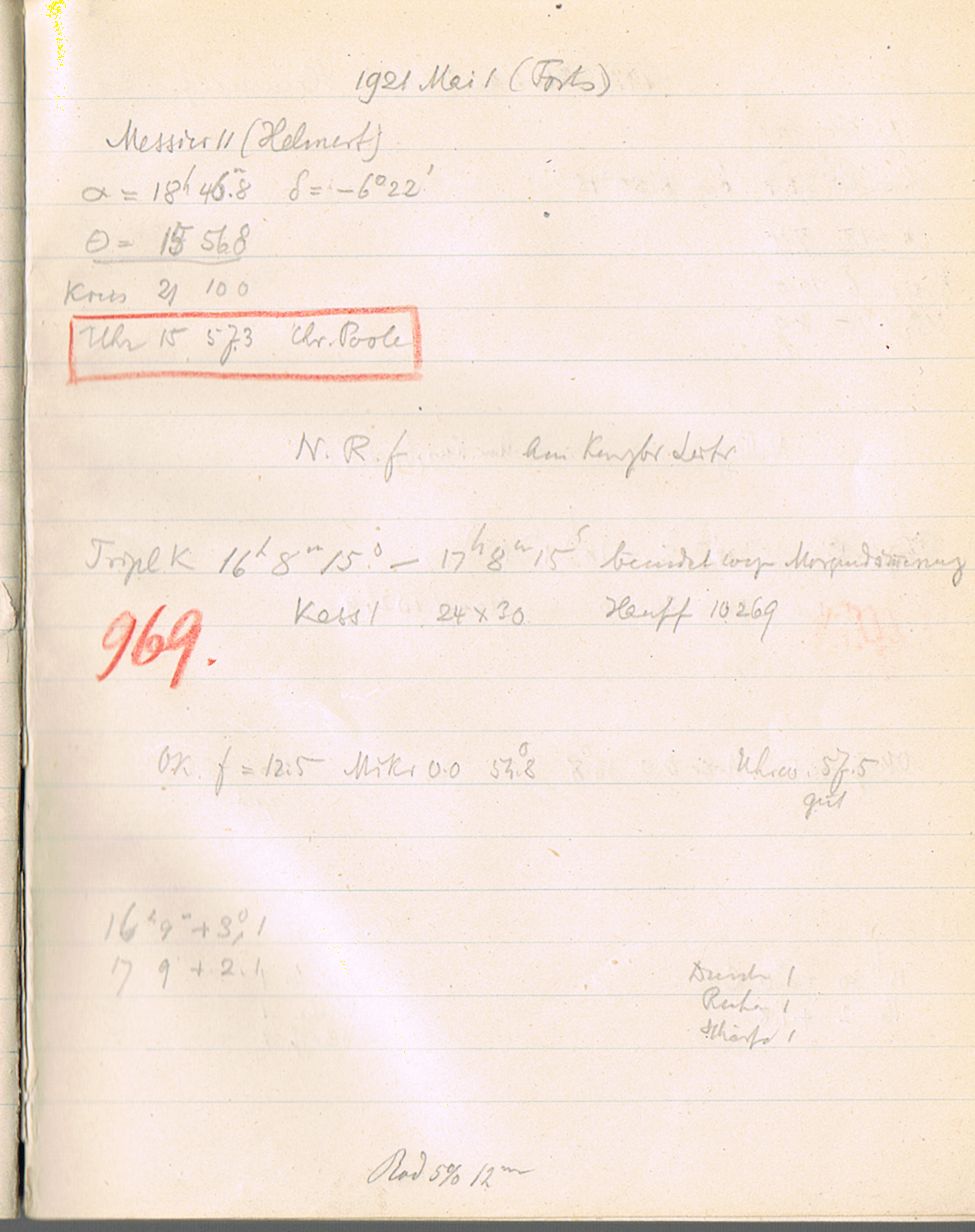 1921 Mai 1 (Forts)
Messier 11 (Helmert)
α = 18ʰ 46.ᵐ8 δ = -6° 22'
Θ = 15 56.8
Kreis 21 10 0
Uhr 15 57.3 Chr. Poole
N. R. f. am
Tripl K 16ʰ 8ᵐ 15ˢ — 17ʰ 8ᵐ 15ˢ beendet wegen Morgendämmerung
Kass 1 24 x 30 Hauff 10269
969.
OK. f = 12.5 Mikr 0.0 Uhrw. 57.5
gut
16ʰ 9ᵐ + 3°,1
17 9 + 2.1
Durchs 1
Ruhe 1
Schärfe 1
Rod 5% 12ᵐⁱⁿ